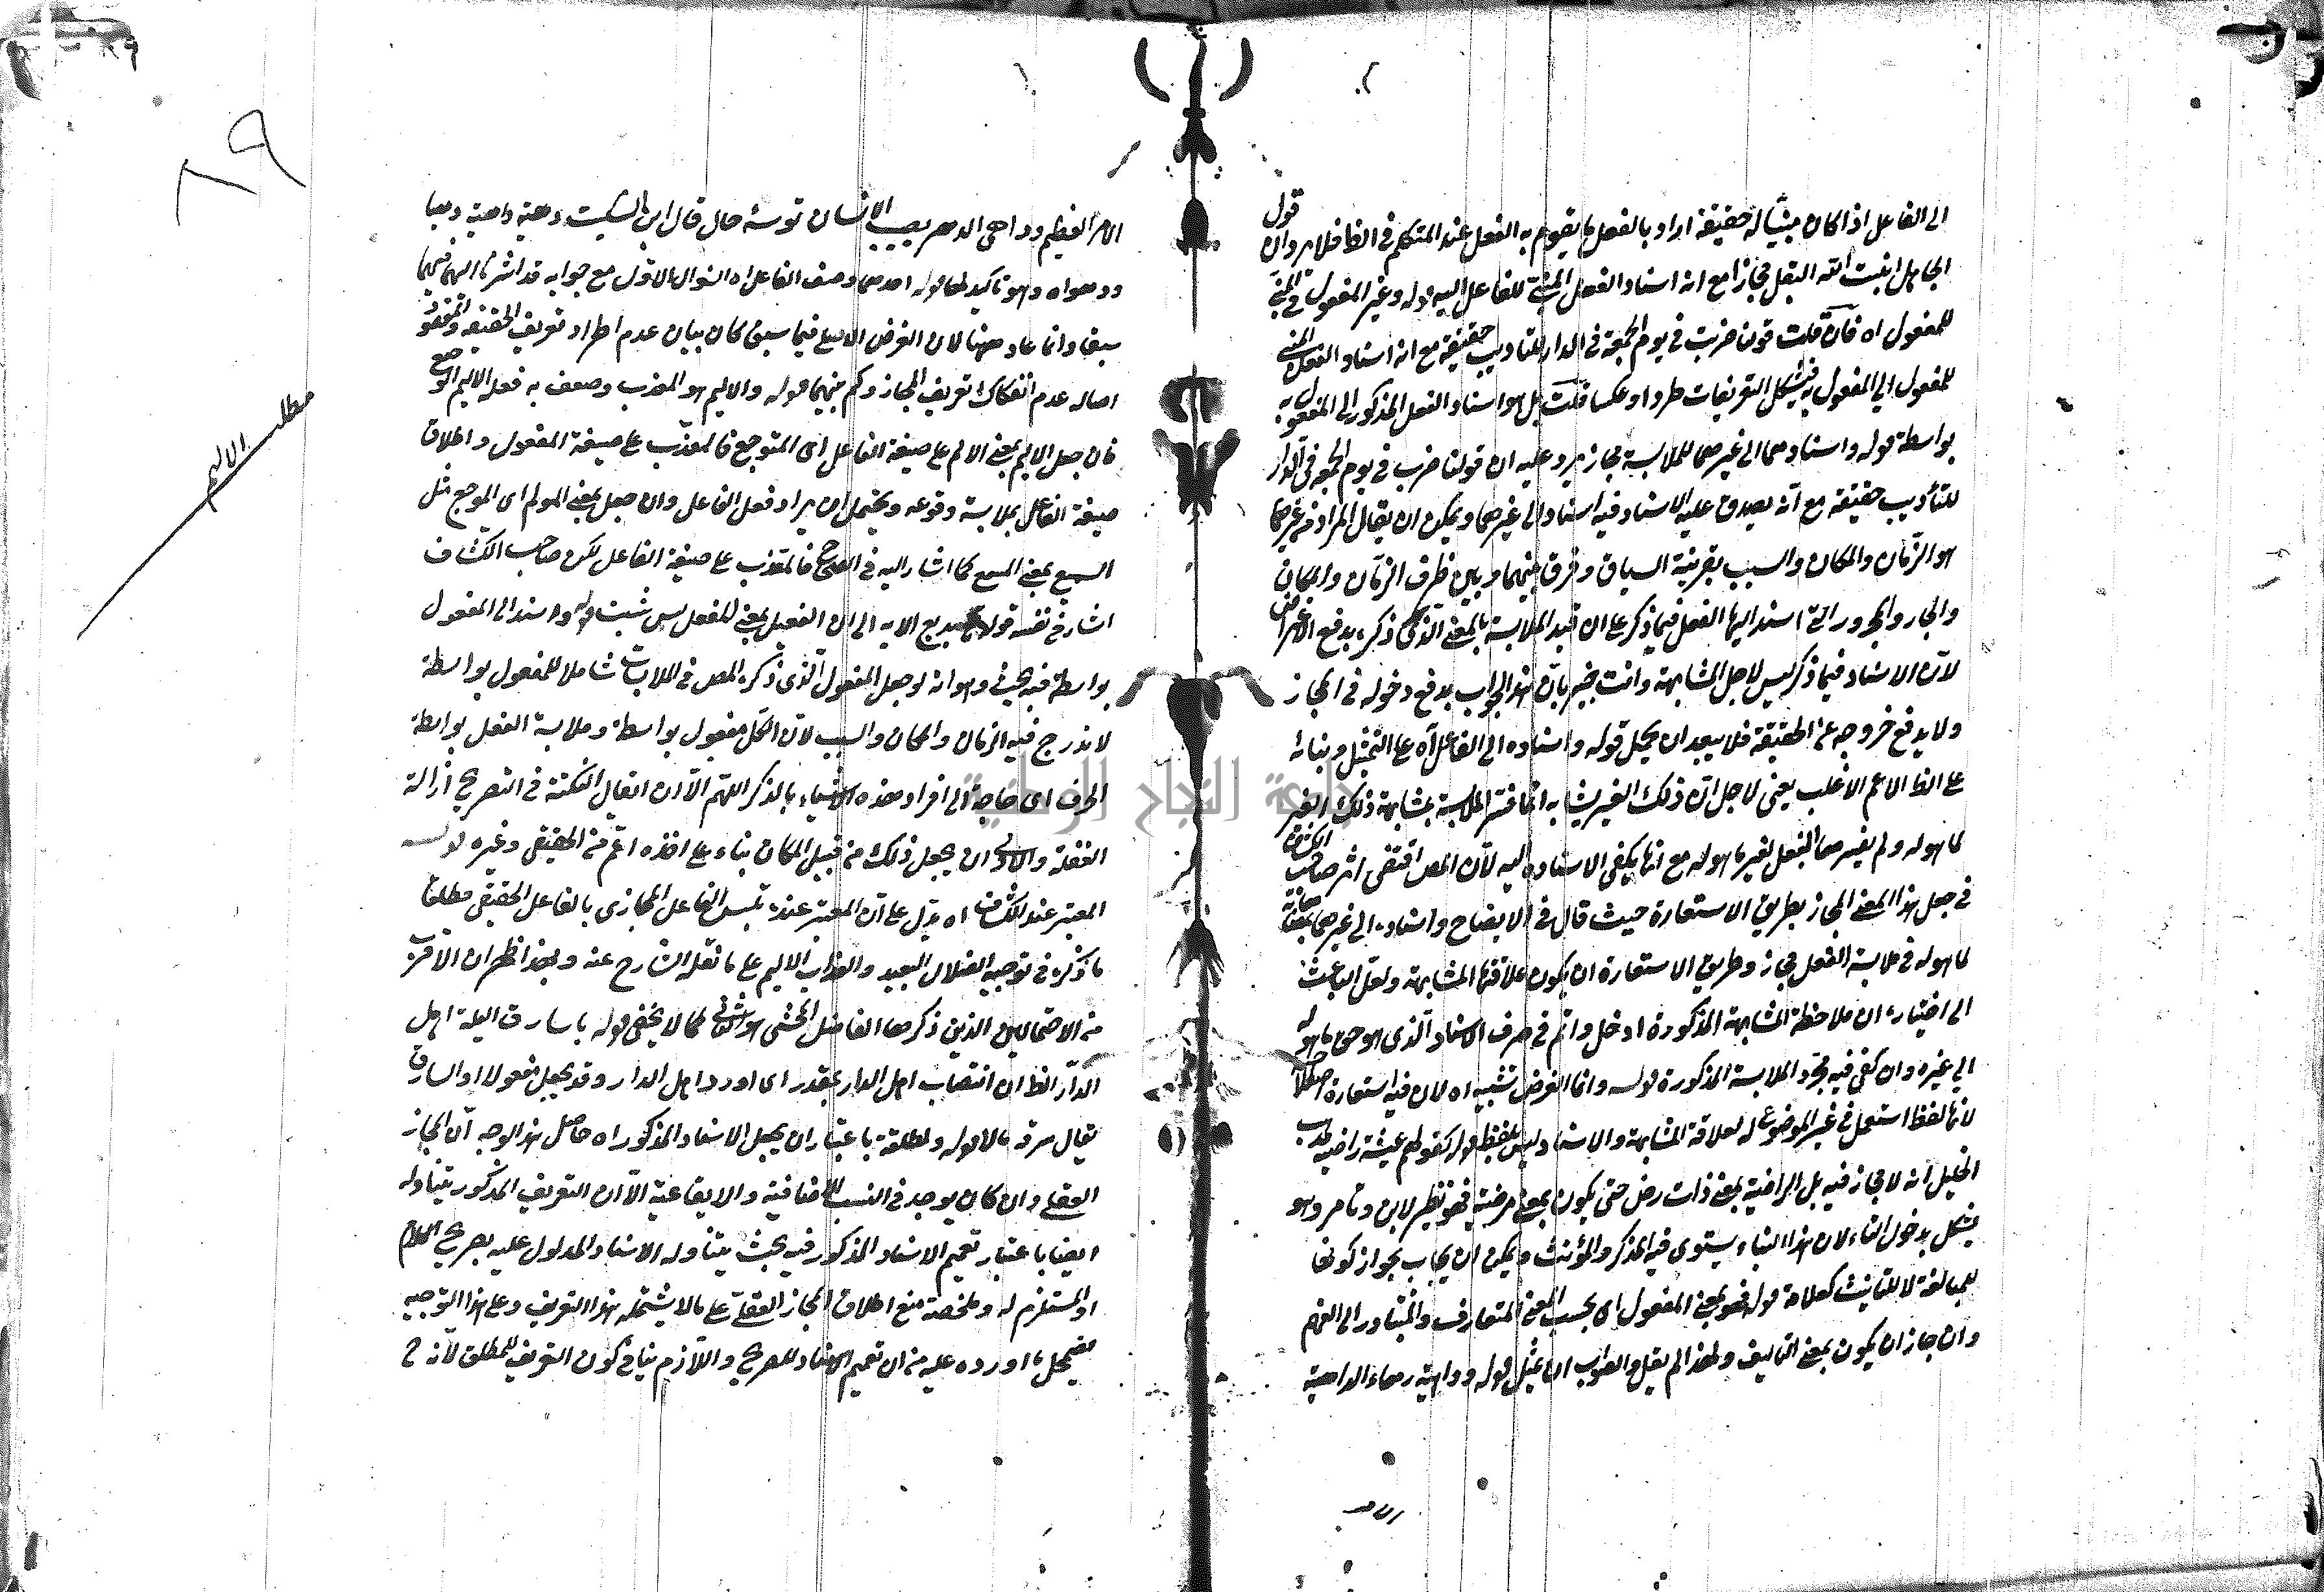 الى الفاعل اذا كان مبنيا له حقيقة اراد بالفعل ما يقوم به الفعل عند المتكلم فى الظ فلا يرد ان قول
الجاهل انبت الله البقل مجازا مع انه اسناد الفعل المبنى للفاعل اليه قوله وغير المفعول فى المبنى
للمفعول اه فان قلت قولنا ضربت فى يوم الجمعة فى الدار للتأديب حقيقة مع انه اسناد الفعل المبنى
للمفعول الي المفعول به فيشكل التعريفات طردا وعكسا قلت بل هو اسناد الفعل المذكور الى المفعول به
بواسطة قوله واسنادهما الى غيرهما للملابسة مجاز يرد عليه ان قولنا ضرب فى يوم الجمعة فى الدار
للتأديب حقيقة مع أنه يصدق عليه الاسناد فيه اسناد الى غيرهما ويمكن ان يقال المراد من غيرهما
هو الزمان والمكان والسبب بقرينة السياق وفرق بينهما وبين ظرف الزمان والمكان
والجار والمجرور التى اسند اليها الفعل فيما ذكر على ان قيد الملابسة بالمعنى الذى ذكره يدفع الاعتراض
لأن الاسناد فيما ذكر ليس لاجل المشابهة وانت خبير بأن هذا الجواب يدفع دخوله فى المجاز
ولا يدفع خروجه عن الحقيقة فلا يبعد ان يحمل قوله واسناده الى الفاعل اه على التمثيل وبنائه
على الظ الاعم الاغلب يعنى لاجل ان ذلك الغير يشابه انما فسر الملابسة بمشابهة ذلك الغير
لما هو له ولم يفسرها بتعلق الفعل بغير ما هو له مع انها يكفى الاسناد اليه لأن المص اقتفى اثر صاحب الكشاف
فى جعل هذا المعنى المجاز بطريق الاستعارة حيث قال فى الايضاح واسناده الى غيرهما لمضاهاته
لما هو له فى ملابسة الفعل مجاز وطريق الاستعارة ان يكون علاقتها المشابهة ولعل الباعث
الى اختياره ان ملاحظة المشابهة المذكورة ادخل واتم فى صرف الاسناد الذى هو حق ما هو له
الي غيره وان كفى فيه مجرد الملابسة المذكورة قوله وانما الغرض تشبيه اه لان فيه استعارة اصطلاحا
لانها لفظ استعمل فى غير الموضوع له لعلاقة المشابهة والاسناد ليس بلفظ قوله كقولهم عيشة راضية مذهب
الخليل انه لا مجاز فيه بل الراضية بمعنى ذات رضى حتى يكون بمعنى مرضية فهو نظير لابن وتامر وهو
يشكل بدخول التاء لان هذا البناء يستوى فيه المذكر والمؤنث ويمكن ان يجاب بجواز كونها
للمبالغة لا للتانيث كعلامة قوله فهو بمعنى المفعول اى بحسب المعنى المتعارف والمتبادر الى الفهم
وان جاز ان يكون بمعنى التاليف ولهذا لم يقل والصواب ان يمثل قوله وداهية دهياء الداهية
الامر
الامر العظيم ودواهى الدهر يصيب الانسان من نوبه حال قال ابن السكيت دهته داهية دهيا
ودهواء وهو تأكيد لها قوله احدهما وصف الفاعل اه السؤال الاول مع جوابه قد اشرنا اليهما فيما
سبق وانما عاد ههنا لان الغرض الاصلى فيما سبق كان بيان عدم اطراد تعريف الحقيقة والمقصود
اصاله عدم انعكاس تعريف المجاز وكم بينهما قوله والاليم هو المعذب وصف به فعله الاليم الوجع
فان جعل الاليم بمعنى الالم على صيغة الفاعل اى المتوجع فالمعذب على صيغة المفعول واطلاق
صيغة الفاعل بملابسة وقوعه ويحتمل ان يراد فعل الفاعل وان جعل بمعنى المولم اى الموجع مثل
السميع بمعنى المسمع كما اشار اليه فى الصحاح فالمعذب على صيغة الفاعل لكن صاحب الكشاف
اشار فى تفسير قوله بديع الايه الى ان الفعيل بمعنى المفعل ليس بثبت قوله واسند الى المفعول
بواسطة فيه بحث وهو انه لو جعل المفعول الذى ذكره المص فى الملابسات شاملا للمفعول بواسطة
لاندرج فيه الزمان والمكان والسبب لأن الكل مفعول بواسطة وملابسة الفعل بواسطة
الحرف اى حاجة الى افراد هذه الاشياء بالذكر اللهم الا ان يقال النكتة فى التصريح ازالة
الغفلة والاولى ان يجعل ذلك من قبيل المكان بناء على اخذه اعم من الحقيقى وغيره قوله
المعتبر عند الكشاف اه يدل على أن المعتبر عنده تلبس الفاعل المجازى بالفاعل الحقيقى مطلقا
ما ذكره فى توجيه الضلال البعيد والعذاب الاليم على ما نقله الشارح عنه وبهذا ظهر ان الاقرب
من الاحتمالين الذين ذكرهما الفاضل المحشى هو الثانى كما لا يخفى قوله يا سارق الليلة اهل
الدار الظ ان انتصاب اهل الدار بمقدر اى اورد اهل الدار وقد يجعل مفعولا اول لسارق
يقال سرقه مالا قوله ولمطلقه باعتبار ان يجعل الاسناد المذكور اه حاصل هذا الوجه أن المجاز
العقلى وان كان يوجد فى النسب الاضافية والايقاعية الا ان التعريف المذكور يتناوله
ايضا باعتبار تعميم الاسناد المذكور فيه بحيث يتناوله الاسناد المدلول عليه بصريح الكلام
او المستلزم له وملخصه منع اطلاق المجاز العقلى على ما لا يشتمله هذا التعريف وعلى هذا التوجيه
يضمحل ما اورده عليه من ان تعميم الاسناد للصريح واللازم ينافى كون التعريف للمطلق لأنه ح
مطلب الاليم
٨٩
جامعة النجاح الوطنية